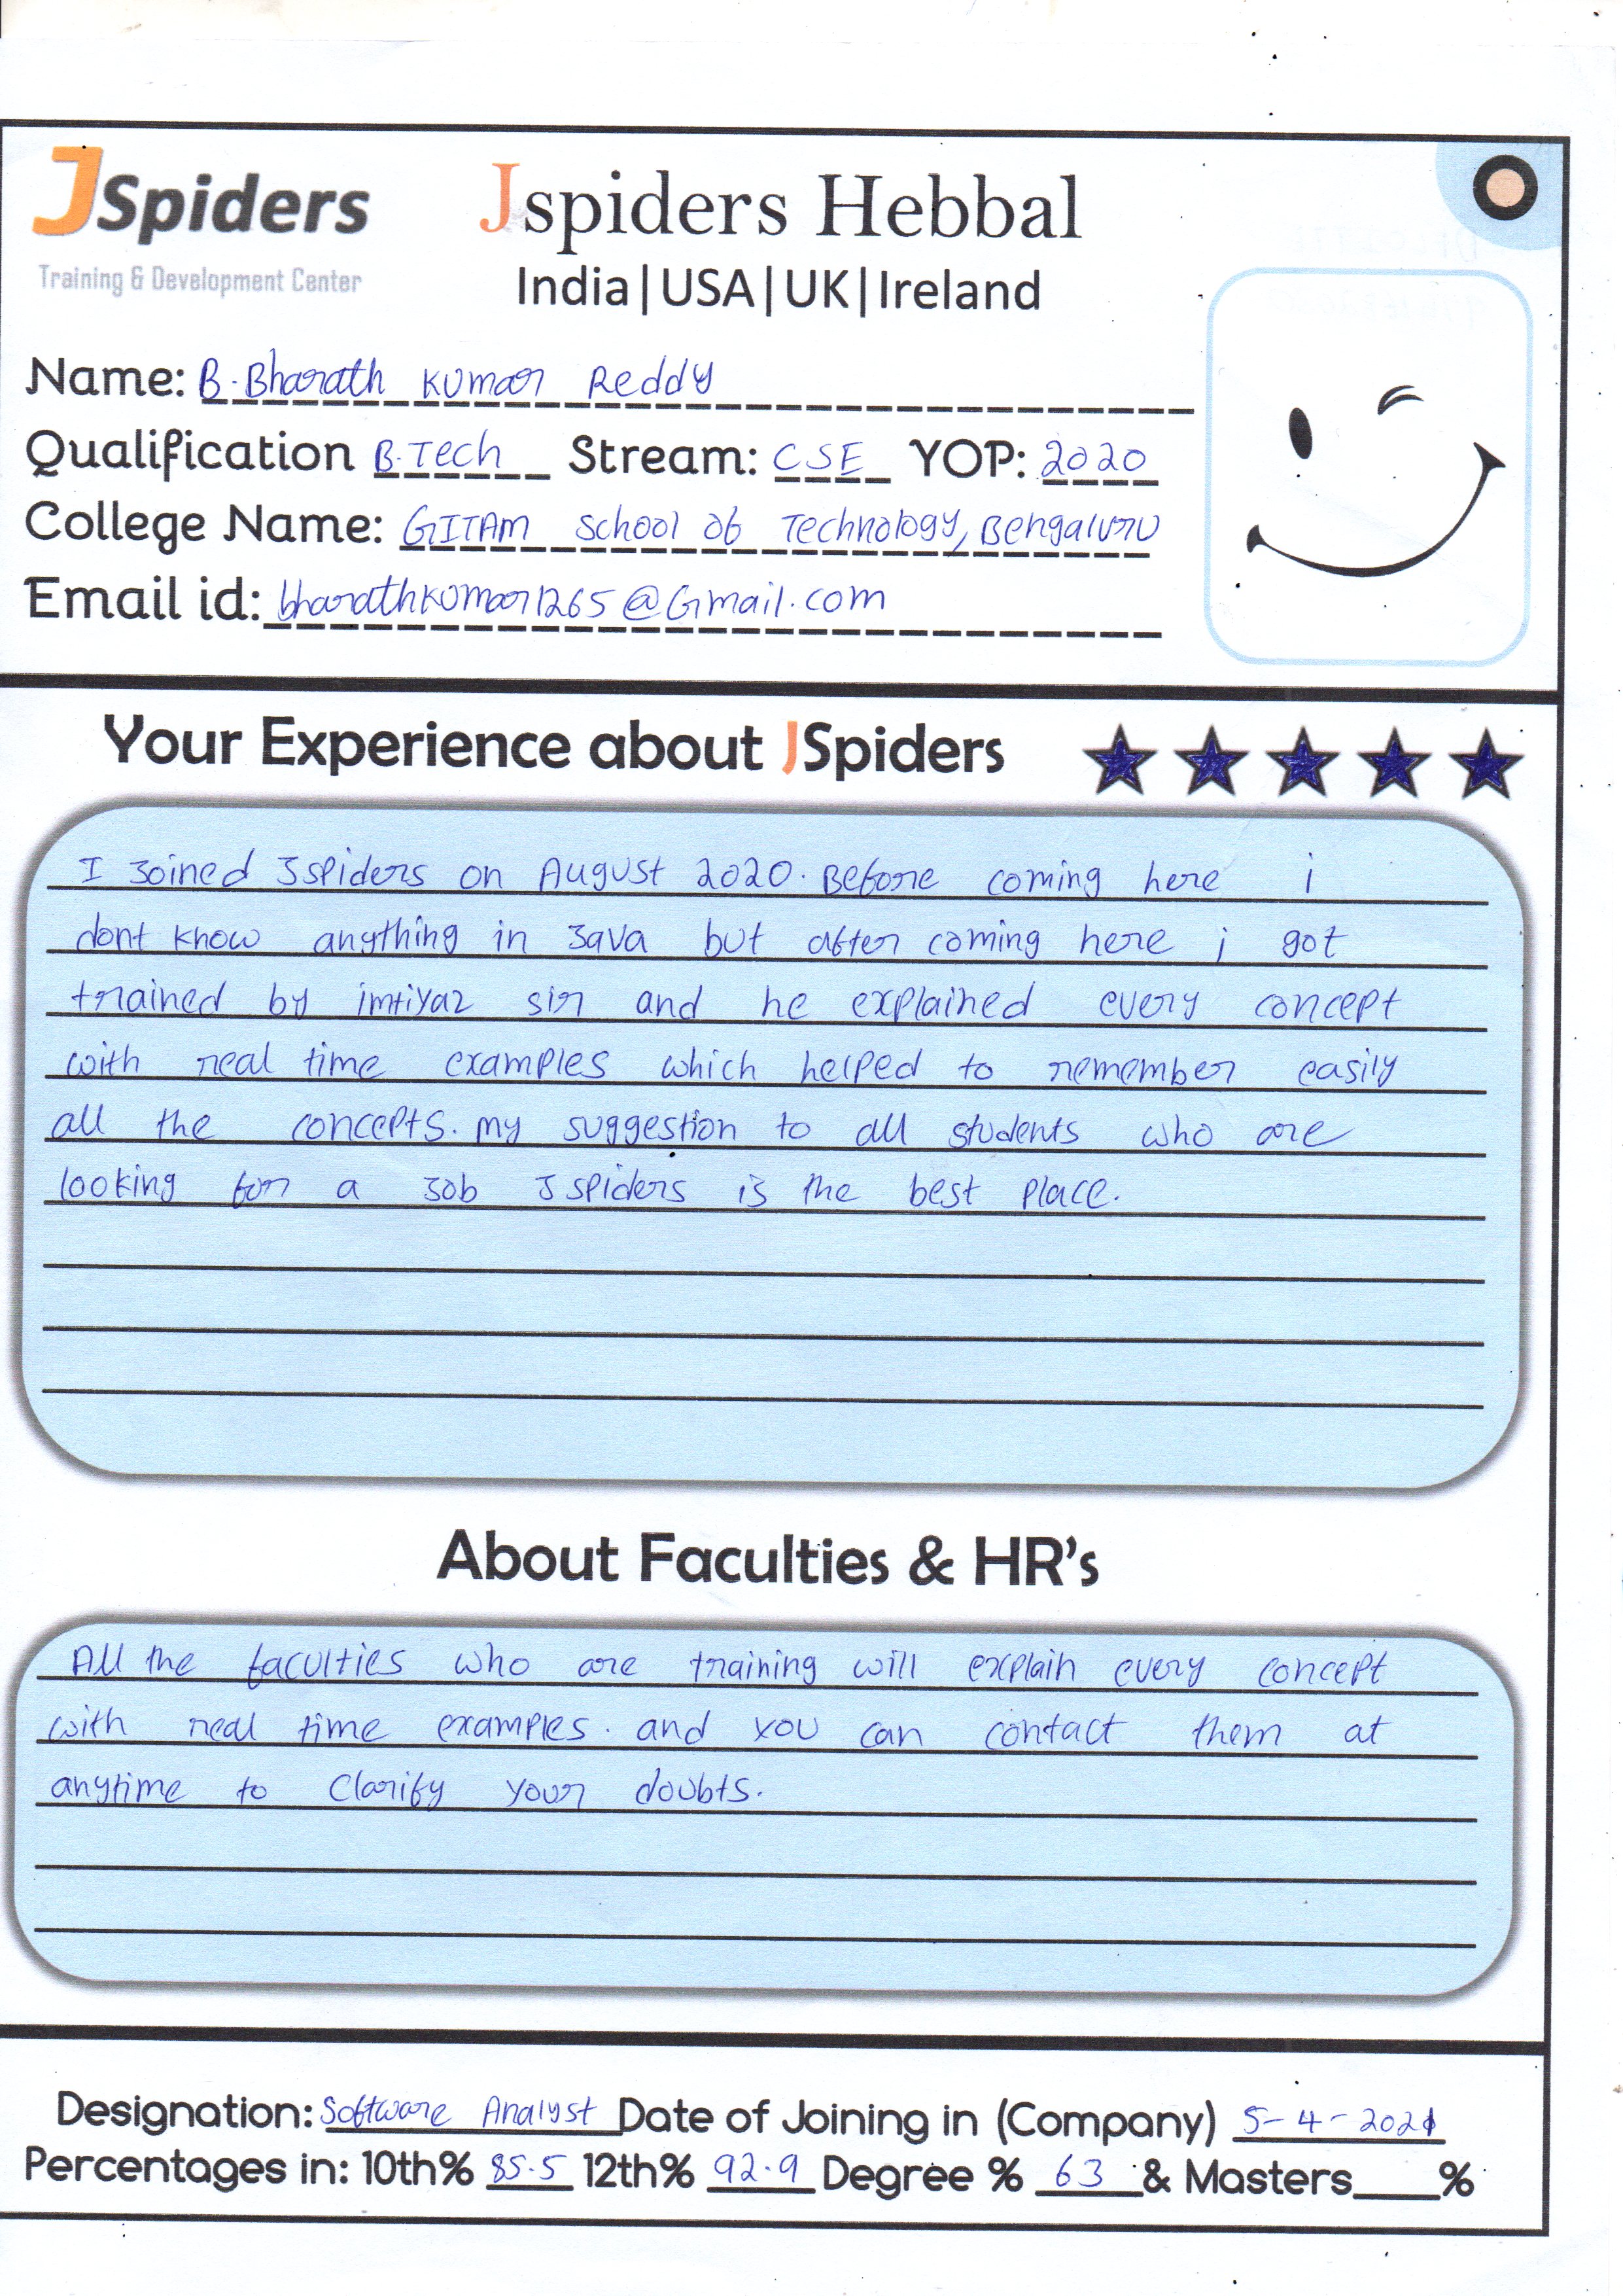 JSpiders
Training & Development Center
Jspiders Hebbal
India|USA|UK|Ireland
Name: B.Bharath Kumar Reddy
Qualification B.Tech Stream: CSE YOP: 2020
College Name: GITAM School of Technology, Bengaluru
Email id: bharathkumar1265@Gmail.com
Your Experience about JSpiders
I Joined Jspiders on August 2020. Before coming here i
dont know anything in Java but after coming here i got
trained by imtiyaz sir and he explained every concept
with real time examples which helped to remember easily
all the concepts. my suggestion to all students who are
looking for a Job Jspiders is the best place.
About Faculties & HR's
All the faculties who are training will explain every concept
with real time examples. and you can contact them at
anytime to Clarify your doubts.
Designation: Software Analyst Date of Joining in (Company) 5-4-2021
Percentages in: 10th% 85.5 12th% 92.9 Degree % 63 & Masters____%